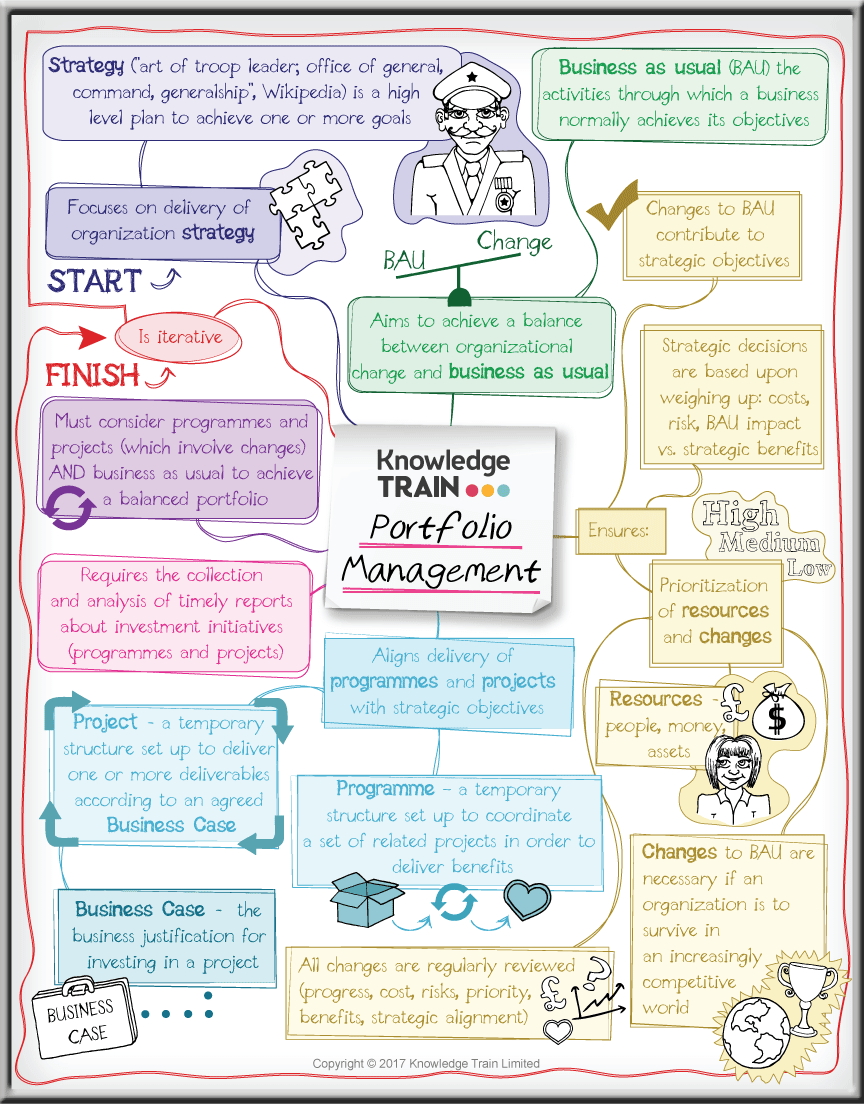 Strategy ("art of troop leader; office of general,
command, generalship", Wikipedia) is a high
level plan to achieve one or more goals
Business as usual (BAU) the
activities through which a business
normally achieves its objectives
Focuses on delivery of
organization strategy
START
Changes to BAU
contribute to
strategic objectives
BAU
Change
Aims to achieve a balance
between organizational
change and business as usual
Is iterative
FINISH
Strategic decisions
are based upon
weighing up: costs,
risk, BAU impact
vs. strategic benefits
Must consider programmes and
projects (which involve changes)
AND business as usual to achieve
a balanced portfolio
Knowledge
TRAIN
Portfolio
Management
Ensures:
High
Medium
Low
Requires the collection
and analysis of timely reports
about investment initiatives
(programmes and projects)
Prioritization
of resources
and changes
Aligns delivery of
programmes and projects
with strategic objectives
Resources -
people, money,
assets
£
$
Project - a temporary
structure set up to deliver
one or more deliverables
according to an agreed
Business Case
Programme - a temporary
structure set up to coordinate
a set of related projects in order to
deliver benefits
Changes to BAU are
necessary if an
organization is to
survive in
an increasingly
competitive
world
Business Case - the
business justification for
investing in a project
BUSINESS
CASE
All changes are regularly reviewed
(progress, cost, risks, priority,
benefits, strategic alignment)
£
?
Copyright © 2017 Knowledge Train Limited